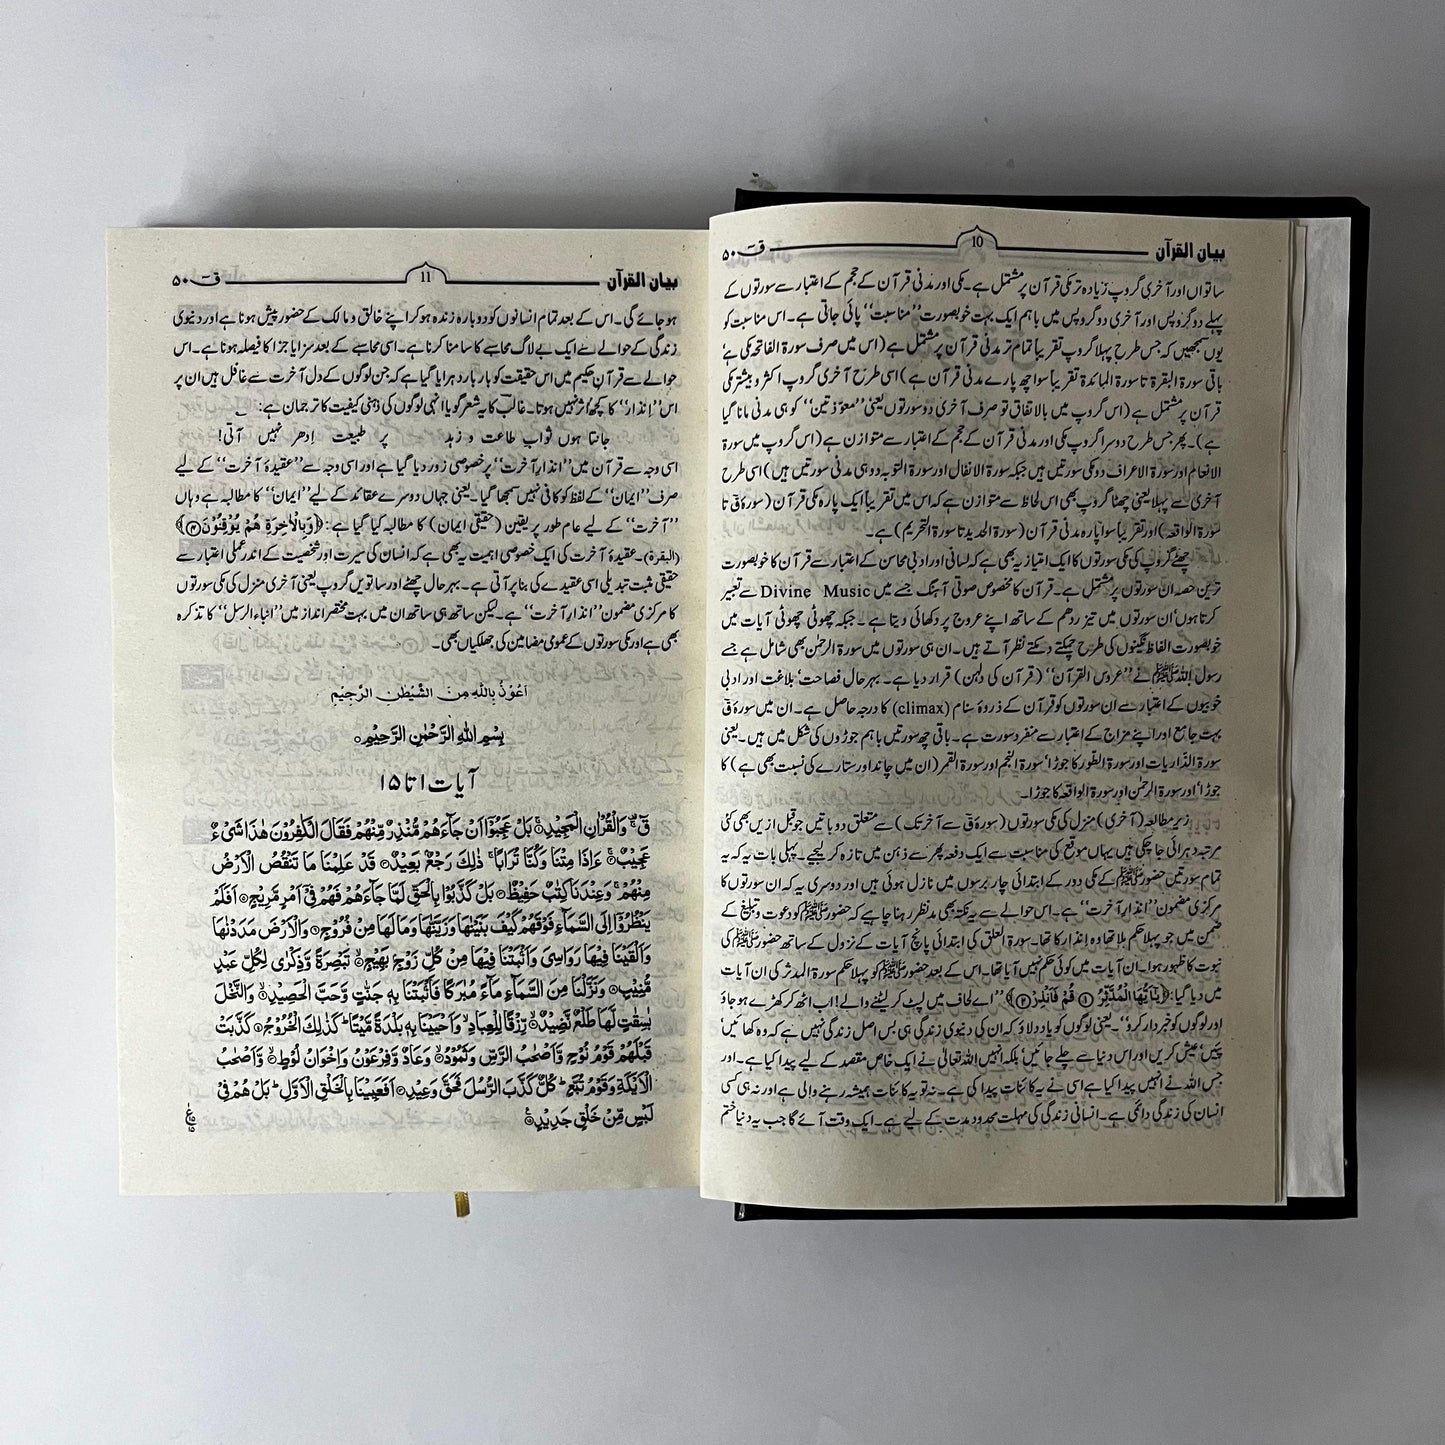 بیان القرآن 10 قٓ ۵۰
ساتواں اور آخری گروپ زیادہ تر مکی قرآن پر مشتمل ہے۔ مکی اور مدنی قرآن کے حجم کے اعتبار سے سورتوں کے
پہلے دو گروپس اور آخری دو گروپس میں باہم ایک بہت خوبصورت ’’مناسبت‘‘ پائی جاتی ہے۔ اس مناسبت کو
یوں سمجھیں کہ جس طرح پہلا گروپ تقریباً تمام تر مدنی قرآن پر مشتمل ہے (اس میں صرف سورۃ الفاتحہ مکی ہے‘
باقی سورۃ البقرۃ تا سورۃ المائدۃ تقریباً سوا چھ پارے مدنی قرآن ہے) اسی طرح آخری گروپ اکثر و بیشتر مکی
قرآن پر مشتمل ہے (اس گروپ میں بالاتفاق تو صرف آخری دو سورتوں یعنی ’’معوّذتین‘‘ کو ہی مدنی مانا گیا
ہے)۔ پھر جس طرح دوسرا گروپ مکی اور مدنی قرآن کے حجم کے اعتبار سے متوازن ہے (اس گروپ میں سورۃ
الانعام اور سورۃ الاعراف دو مکی سورتیں ہیں جبکہ سورۃ الانفال اور سورۃ التوبہ دو ہی مدنی سورتیں ہیں) اسی طرح
آخری سے پہلا یعنی چھٹا گروپ بھی اس لحاظ سے متوازن ہے کہ اس میں تقریباً ایک پارہ مکی قرآن (سورۂ قٓ تا
سورۃ الواقعہ) اور تقریباً سوا پارہ مدنی قرآن (سورۃ الحدید تا سورۃ التحریم) ہے۔
چھٹے گروپ کی مکی سورتوں کا ایک امتیاز یہ بھی ہے کہ لسانی اور ادبی محاسن کے اعتبار سے قرآن کا خوبصورت
ترین حصہ ان سورتوں پر مشتمل ہے۔ قرآن کا مخصوص صوتی آہنگ جسے میں Divine Music سے تعبیر
کرتا ہوں‘ ان سورتوں میں تیز ردھم کے ساتھ اپنے عروج پر دکھائی دیتا ہے۔ جبکہ چھوٹی چھوٹی آیات میں
خوبصورت الفاظ نگینوں کی طرح چمکتے دمکتے نظر آتے ہیں۔ ان ہی سورتوں میں سورۃ الرحمٰن بھی شامل ہے جسے
رسول اللہ ﷺ نے ’’عروس القرآن‘‘ (قرآن کی دلہن) قرار دیا ہے۔ بہرحال فصاحت‘ بلاغت اور ادبی
خوبیوں کے اعتبار سے ان سورتوں کو قرآن کے ذروۂ سنام (climax) کا درجہ حاصل ہے۔ ان میں سورۂ قٓ
بہت جامع اور اپنے مزاج کے اعتبار سے منفرد سورت ہے۔ باقی چھ سورتیں باہم جوڑوں کی شکل میں ہیں۔ یعنی
سورۃ الذّاریات اور سورۃ الطّور کا جوڑا‘ سورۃ النجم اور سورۃ القمر (ان میں چاند اور ستارے کی نسبت بھی ہے) کا
جوڑا‘ اور سورۃ الرحمٰن اور سورۃ الواقعہ کا جوڑا۔
زیر مطالعہ (آخری) منزل کی مکی سورتوں (سورۂ قٓ سے آخر تک) سے متعلق دو باتیں جو قبل ازیں بھی کئی
مرتبہ دہرائی جا چکی ہیں یہاں موقع کی مناسبت سے ایک دفعہ پھر سے ذہن میں تازہ کر لیجیے۔ پہلی بات یہ کہ یہ
تمام سورتیں حضور ﷺ کے مکی دور کے ابتدائی چار برسوں میں نازل ہوئی ہیں اور دوسری یہ کہ ان سورتوں کا
مرکزی مضمون ’’انذارِ آخرت‘‘ ہے۔ اس حوالے سے یہ نکتہ بھی مدنظر رہنا چاہیے کہ حضور ﷺ کو دعوت و تبلیغ کے
ضمن میں جو پہلا حکم ملا تھا وہ انذار کا تھا۔ سورۃ العلق کی ابتدائی پانچ آیات کے نزول کے ساتھ حضور ﷺ کی
نبوت کا ظہور ہوا۔ ان آیات میں کوئی حکم نہیں آیا تھا۔ اس کے بعد حضور ﷺ کو پہلا حکم سورۃ المدثر کی ان آیات
میں دیا گیا: ﴿یٰٓاَیُّھَا الْمُدَّثِّرُ ۝۱ قُمْ فَاَنْذِرْ ۝۲﴾ ’’اے لحاف میں لپٹ کر لیٹنے والے! اب اٹھ کر کھڑے ہو جاؤ
اور لوگوں کو خبردار کرو‘‘۔ یعنی لوگوں کو یاد دلاؤ کہ ان کی دنیوی زندگی ہی بس اصل زندگی نہیں ہے کہ وہ کھائیں‘
پیئں‘ عیش کریں اور اس دنیا سے چلے جائیں‘ بلکہ انہیں اللہ تعالیٰ نے ایک خاص مقصد کے لیے پیدا کیا ہے۔ اور
جس اللہ نے انہیں پیدا کیا ہے اسی نے یہ کائنات پیدا کی ہے۔ نہ تو یہ کائنات ہمیشہ رہنے والی ہے اور نہ ہی کسی
انسان کی زندگی دائمی ہے۔ انسانی زندگی کی مہلت محدود مدت کے لیے ہے۔ ایک وقت آئے گا جب یہ دنیا ختم
بیان القرآن 11 قٓ ۵۰
ہو جائے گی۔ اس کے بعد تمام انسانوں کو دوبارہ زندہ ہو کر اپنے خالق و مالک کے حضور پیش ہونا ہے اور دنیوی
زندگی کے حوالے سے ایک بے لاگ محاسبے کا سامنا کرنا ہے۔ اسی محاسبے کے بعد سزا یا جزا کا فیصلہ ہونا ہے۔ اس
حوالے سے قرآن حکیم میں اس حقیقت کو بار بار دہرایا گیا ہے کہ جن لوگوں کے دل آخرت سے غافل ہیں ان پر
اس ’’اِنذار‘‘ کا کچھ اثر نہیں ہوتا۔ غالبؔ کا یہ شعر گویا انہی لوگوں کی ذہنی کیفیت کا ترجمان ہے: ؎
جانتا ہوں ثوابِ طاعت و زہد پر طبیعت اِدھر نہیں آتی!
اسی وجہ سے قرآن میں ’’انذارِ آخرت‘‘ پر خصوصی زور دیا گیا ہے اور اسی وجہ سے ’’عقیدۂ آخرت‘‘ کے لیے
صرف ’’ایمان‘‘ کے لفظ کو کافی نہیں سمجھا گیا۔ یعنی جہاں دوسرے عقائد کے لیے ’’ایمان‘‘ کا مطالبہ ہے وہاں
’’آخرت‘‘ کے لیے عام طور پر یقین (حقیقی ایمان) کا مطالبہ کیا گیا ہے: ﴿وَبِالْاٰخِرَۃِ ھُمْ یُوْقِنُوْنَ ۝۴﴾
(البقرۃ)۔ عقیدۂ آخرت کی ایک خصوصی اہمیت یہ بھی ہے کہ انسان کی سیرت اور شخصیت کے اندر عملی اعتبار سے
حقیقی مثبت تبدیلی اسی عقیدے کی بنا پر آتی ہے۔ بہرحال چھٹے اور ساتویں گروپ یعنی آخری منزل کی مکی سورتوں
کا مرکزی مضمون ’’انذارِ آخرت‘‘ ہے۔ لیکن ساتھ ہی ساتھ ان میں بہت مختصر انداز میں ’’انباء الرسل‘‘ کا تذکرہ
بھی ہے اور مکی سورتوں کے عمومی مضامین کی جھلکیاں بھی۔
اَعُوْذُ بِاللّٰہِ مِنَ الشَّیْطٰنِ الرَّجِیْمِ
بِسْمِ اللّٰہِ الرَّحْمٰنِ الرَّحِیْمِ
آیات ۱ تا ۱۵
قٓ ۚ وَالْقُرْاٰنِ الْمَجِیْدِ ۚ بَلْ عَجِبُوْٓا اَنْ جَآءَھُمْ مُّنْذِرٌ مِّنْھُمْ فَقَالَ الْکٰفِرُوْنَ ھٰذَا شَیْءٌ
عَجِیْبٌ ۚ ءَاِذَا مِتْنَا وَکُنَّا تُرَابًا ۚ ذٰلِکَ رَجْعٌۢ بَعِیْدٌ قَدْ عَلِمْنَا مَا تَنْقُصُ الْاَرْضُ
مِنْھُمْ ۚ وَعِنْدَنَا کِتٰبٌ حَفِیْظٌ بَلْ کَذَّبُوْا بِالْحَقِّ لَمَّا جَآءَھُمْ فَھُمْ فِیْٓ اَمْرٍ مَّرِیْجٍ اَفَلَمْ
یَنْظُرُوْٓا اِلَی السَّمَآءِ فَوْقَھُمْ کَیْفَ بَنَیْنٰھَا وَزَیَّنّٰھَا وَمَا لَھَا مِنْ فُرُوْجٍ وَالْاَرْضَ مَدَدْنٰھَا
وَاَلْقَیْنَا فِیْھَا رَوَاسِیَ وَاَنْۢبَتْنَا فِیْھَا مِنْ کُلِّ زَوْجٍۢ بَھِیْجٍ ۙ تَبْصِرَۃً وَّذِکْرٰی لِکُلِّ عَبْدٍ
مُّنِیْبٍ وَنَزَّلْنَا مِنَ السَّمَآءِ مَآءً مُّبٰرَکًا فَاَنْۢبَتْنَا بِہٖ جَنّٰتٍ وَّحَبَّ الْحَصِیْدِ ۙ وَالنَّخْلَ
بٰسِقٰتٍ لَّھَا طَلْعٌ نَّضِیْدٌ ۙ رِّزْقًا لِّلْعِبَادِ ۙ وَاَحْیَیْنَا بِہٖ بَلْدَۃً مَّیْتًا ؕ کَذٰلِکَ الْخُرُوْجُ کَذَّبَتْ
قَبْلَھُمْ قَوْمُ نُوْحٍ وَّاَصْحٰبُ الرَّسِّ وَثَمُوْدُ ۙ وَعَادٌ وَّفِرْعَوْنُ وَاِخْوَانُ لُوْطٍ ۙ وَّاَصْحٰبُ
الْاَیْکَۃِ وَقَوْمُ تُبَّعٍ ؕ کُلٌّ کَذَّبَ الرُّسُلَ فَحَقَّ وَعِیْدِ اَفَعَیِیْنَا بِالْخَلْقِ الْاَوَّلِ ؕ بَلْ ھُمْ فِیْ
لَبْسٍ مِّنْ خَلْقٍ جَدِیْدٍ